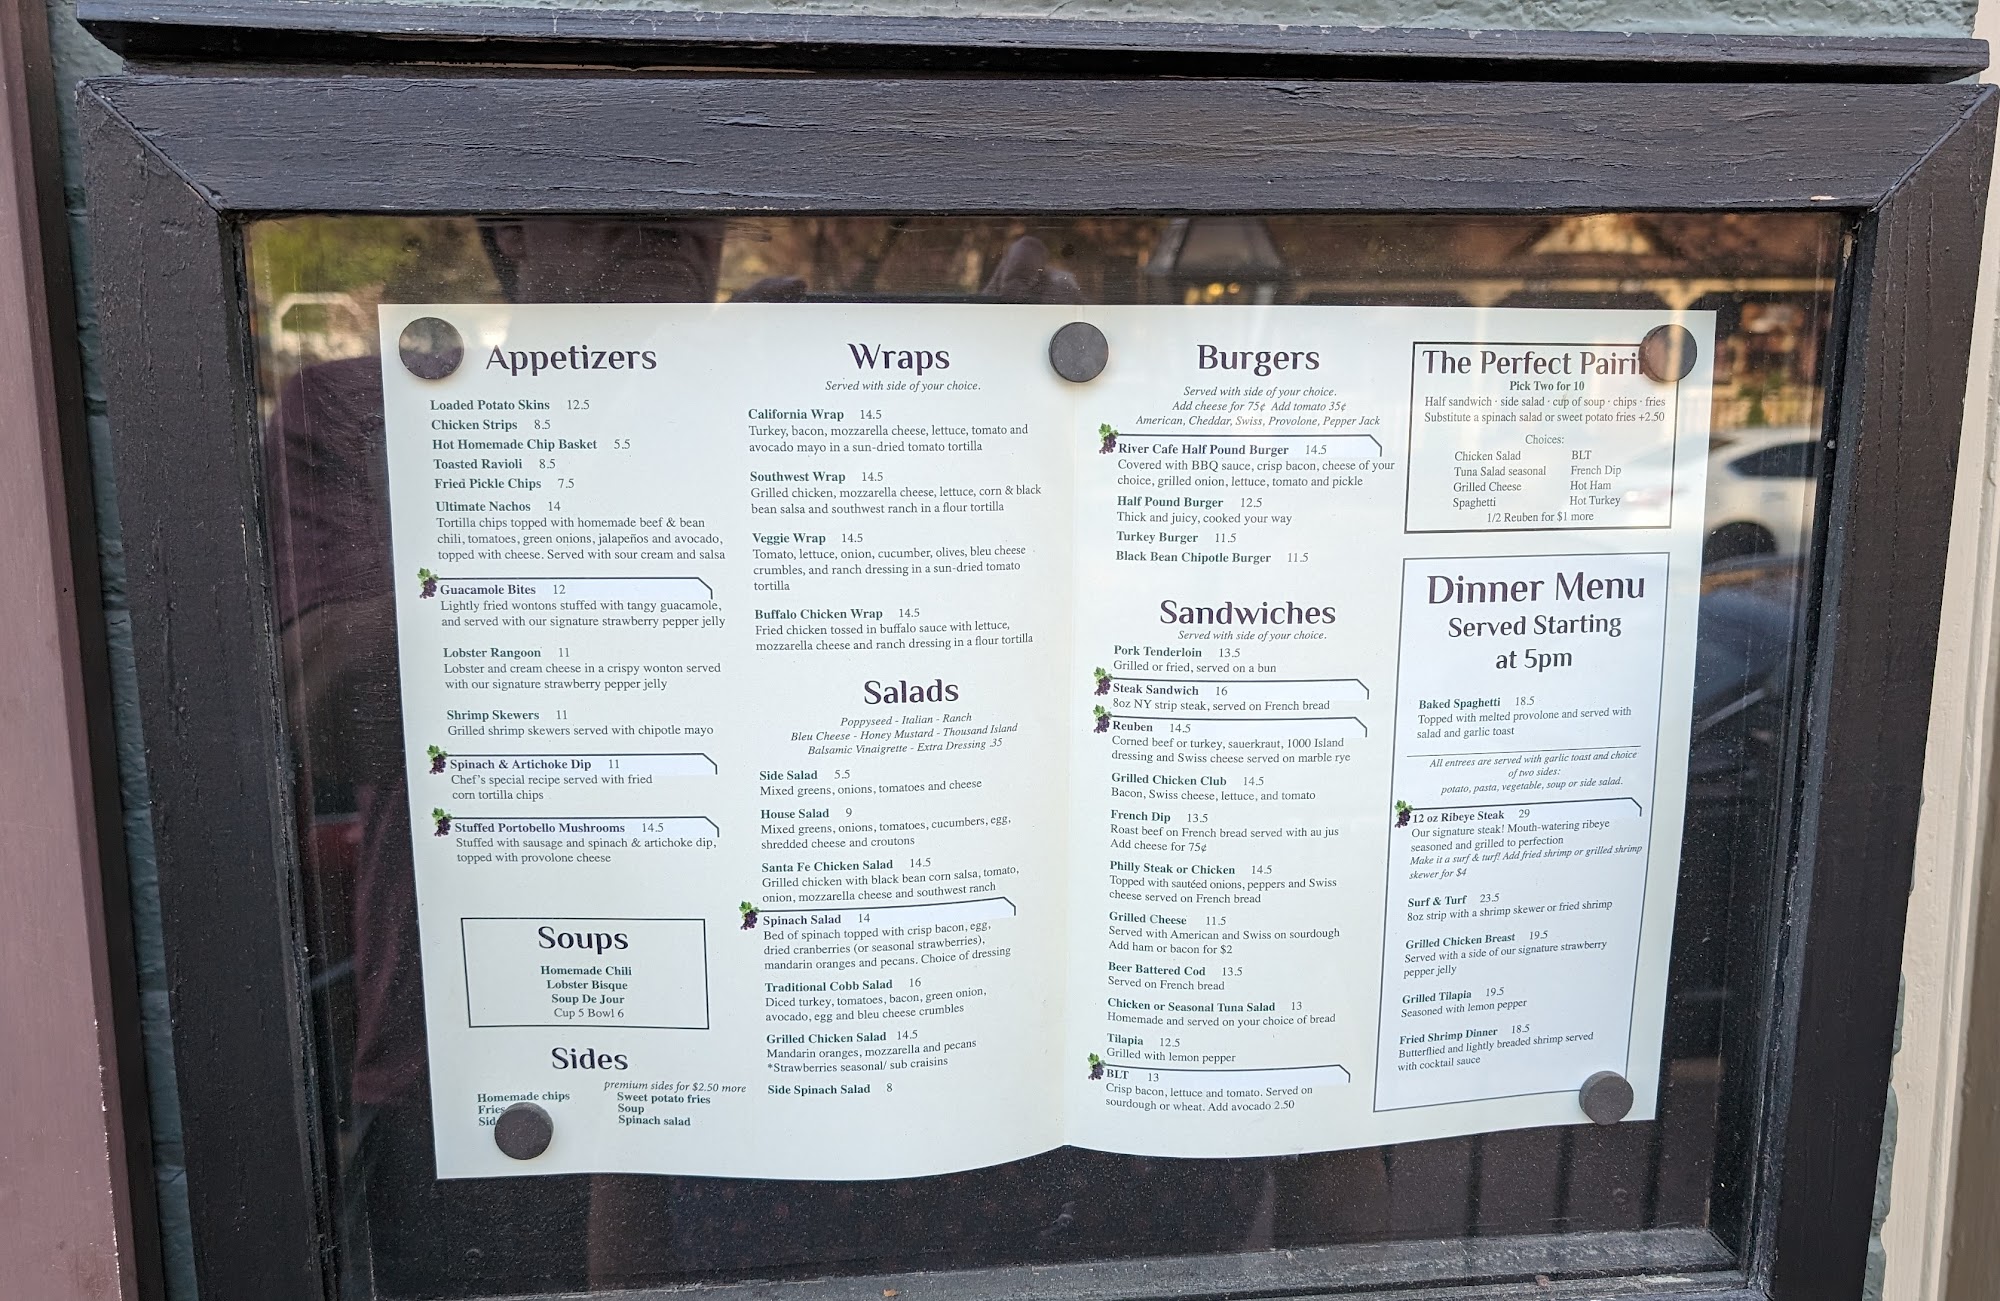 Appetizers
Loaded Potato Skins 12.5
Chicken Strips 8.5
Hot Homemade Chip Basket 5.5
Toasted Ravioli 8.5
Fried Pickle Chips 7.5
Ultimate Nachos 14
Tortilla chips topped with homemade beef & bean
chili, tomatoes, green onions, jalapeños and avocado,
topped with cheese. Served with sour cream and salsa
Guacamole Bites 12
Lightly fried wontons stuffed with tangy guacamole,
and served with our signature strawberry pepper jelly
Lobster Rangoon 11
Lobster and cream cheese in a crispy wonton served
with our signature strawberry pepper jelly
Shrimp Skewers 11
Grilled shrimp skewers served with chipotle mayo
Spinach & Artichoke Dip 11
Chef's special recipe served with fried
corn tortilla chips
Stuffed Portobello Mushrooms 14.5
Stuffed with sausage and spinach & artichoke dip,
topped with provolone cheese
Soups
Homemade Chili
Lobster Bisque
Soup De Jour
Cup 5 Bowl 6
Sides
Homemade chips
Fries
premium sides for $2.50 more
Sweet potato fries
Soup
Spinach salad
Wraps
Served with side of your choice.
California Wrap 14.5
Turkey, bacon, mozzarella cheese, lettuce, tomato and
avocado mayo in a sun-dried tomato tortilla
Southwest Wrap 14.5
Grilled chicken, mozzarella cheese, lettuce, corn & black
bean salsa and southwest ranch in a flour tortilla
Veggie Wrap 14.5
Tomato, lettuce, onion, cucumber, olives, bleu cheese
crumbles, and ranch dressing in a sun-dried tomato
tortilla
Buffalo Chicken Wrap 14.5
Fried chicken tossed in buffalo sauce with lettuce,
mozzarella cheese and ranch dressing in a flour tortilla
Salads
Poppyseed - Italian - Ranch
Bleu Cheese - Honey Mustard - Thousand Island
Balsamic Vinaigrette - Extra Dressing .35
Side Salad 5.5
Mixed greens, onions, tomatoes and cheese
House Salad 9
Mixed greens, onions, tomatoes, cucumbers, egg,
shredded cheese and croutons
Santa Fe Chicken Salad 14.5
Grilled chicken with black bean corn salsa, tomato,
onion, mozzarella cheese and southwest ranch
Spinach Salad 14
Bed of spinach topped with crisp bacon, egg,
dried cranberries (or seasonal strawberries),
mandarin oranges and pecans. Choice of dressing
Traditional Cobb Salad 16
Diced turkey, tomatoes, bacon, green onion,
avocado, egg and bleu cheese crumbles
Grilled Chicken Salad 14.5
Mandarin oranges, mozzarella and pecans
*Strawberries seasonal/ sub craisins
Side Spinach Salad 8
Burgers
Served with side of your choice.
Add cheese for 75¢ Add tomato 35¢
American, Cheddar, Swiss, Provolone, Pepper Jack
River Cafe Half Pound Burger 14.5
Covered with BBQ sauce, crisp bacon, cheese of your
choice, grilled onion, lettuce, tomato and pickle
Half Pound Burger 12.5
Thick and juicy, cooked your way
Turkey Burger 11.5
Black Bean Chipotle Burger 11.5
Sandwiches
Served with side of your choice.
Pork Tenderloin 13.5
Grilled or fried, served on a bun
Steak Sandwich 16
8oz NY strip steak, served on French bread
Reuben 14.5
Corned beef or turkey, sauerkraut, 1000 Island
dressing and Swiss cheese served on marble rye
Grilled Chicken Club 14.5
Bacon, Swiss cheese, lettuce, and tomato
French Dip 13.5
Roast beef on French bread served with au jus
Add cheese for 75¢
Philly Steak or Chicken 14.5
Topped with sautéed onions, peppers and Swiss
cheese served on French bread
Grilled Cheese 11.5
Served with American and Swiss on sourdough
Add ham or bacon for $2
Beer Battered Cod 13.5
Served on French bread
Chicken or Seasonal Tuna Salad 13
Homemade and served on your choice of bread
Tilapia 12.5
Grilled with lemon pepper
BLT 13
Crisp bacon, lettuce and tomato. Served on
sourdough or wheat. Add avocado 2.50
The Perfect
Pick Two for 10
Half sandwich · side salad · cup of soup · chips · fries
Substitute a spinach salad or sweet potato fries +2.50
Choices:
Chicken Salad BLT
Tuna Salad seasonal French Dip
Grilled Cheese Hot Ham
Spaghetti Hot Turkey
1/2 Reuben for $1 more
Dinner Menu
Served Starting
at 5pm
Baked Spaghetti 18.5
Topped with melted provolone and served with
salad and garlic toast
All entrees are served with garlic toast and choice
of two sides:
potato, pasta, vegetable, soup or side salad.
12 oz Ribeye Steak 29
Our signature steak! Mouth-watering ribeye
seasoned and grilled to perfection
Make it a surf & turf! Add fried shrimp or grilled shrimp
skewer for $4
Surf & Turf 23.5
8oz strip with a shrimp skewer or fried shrimp
Grilled Chicken Breast 19.5
Served with a side of our signature strawberry
pepper jelly
Grilled Tilapia 19.5
Seasoned with lemon pepper
Fried Shrimp Dinner 18.5
Butterflied and lightly breaded shrimp served
with cocktail sauce